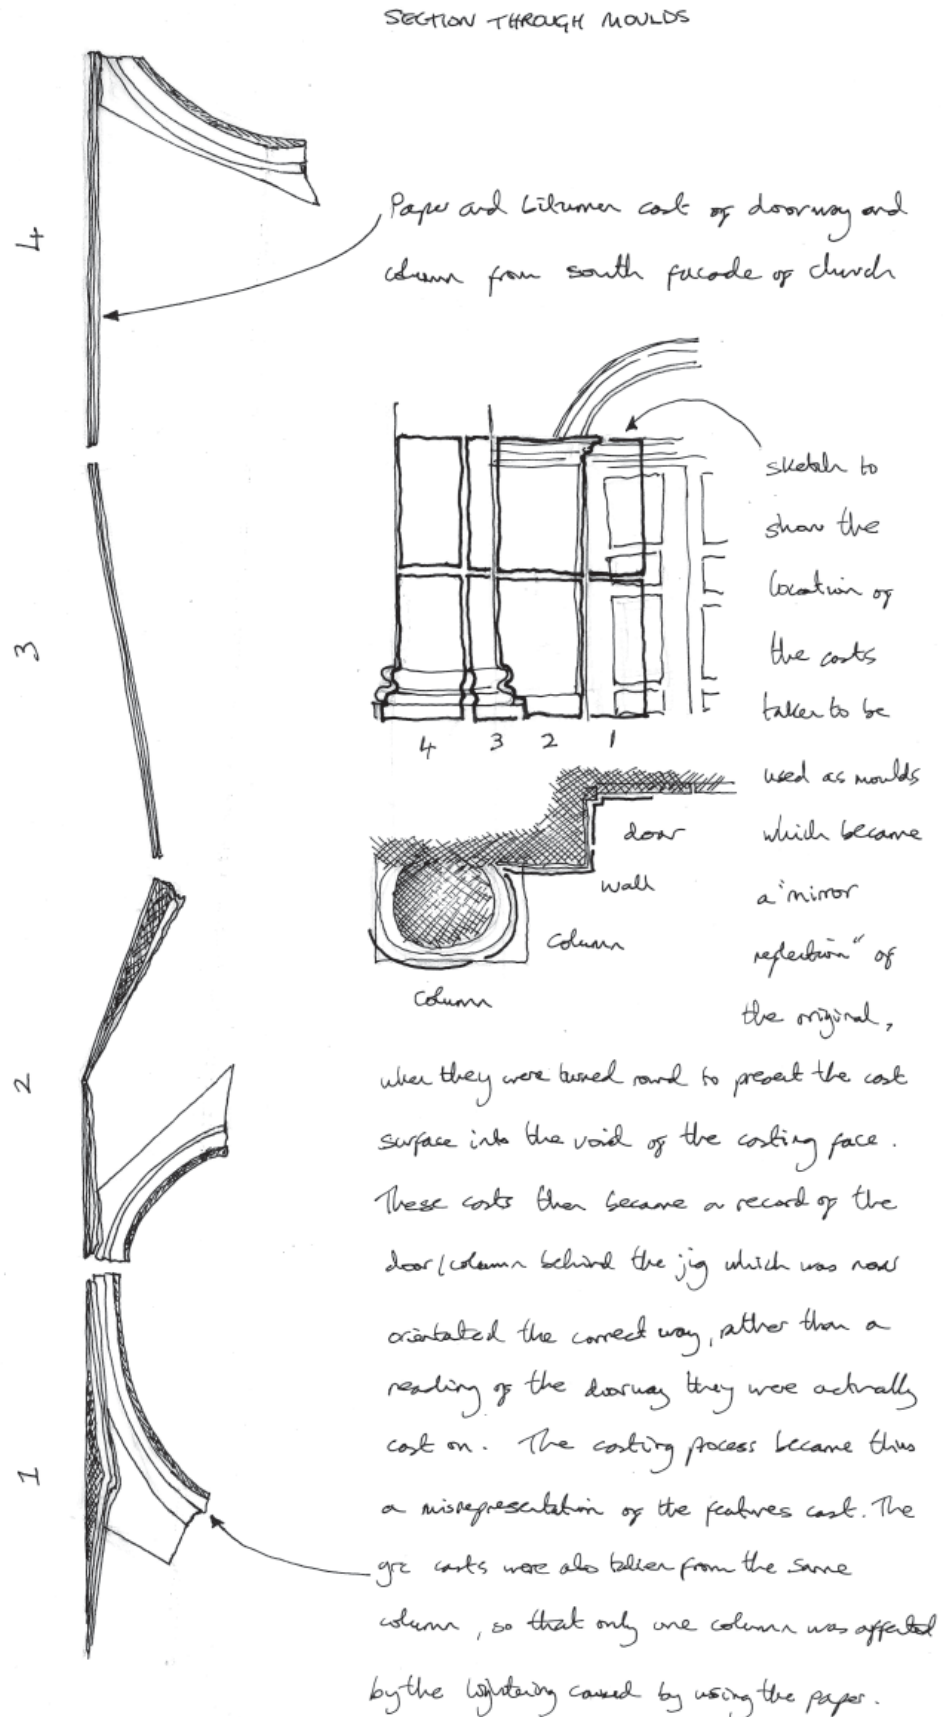 SECTION THROUGH MOULDS
4
Paper and bitumen cast of doorway and
column from south facade of church
sketch to
show the
location of
the casts
taken to be
used as moulds
which became
a "mirror
reflection" of
the original,
4 3 2 1
door
wall
column
column
3
2
when they were turned round to present the cast
surface into the void of the casting face.
These casts then became a record of the
door/column behind the jig which was now
orientated the correct way, rather than a
reading of the doorway they were actually
cast on. The casting process became thus
a misrepresentation of the features cast. The
1
grc casts were also taken from the same
column, so that only one column was affected
by the lightening caused by using the paper.